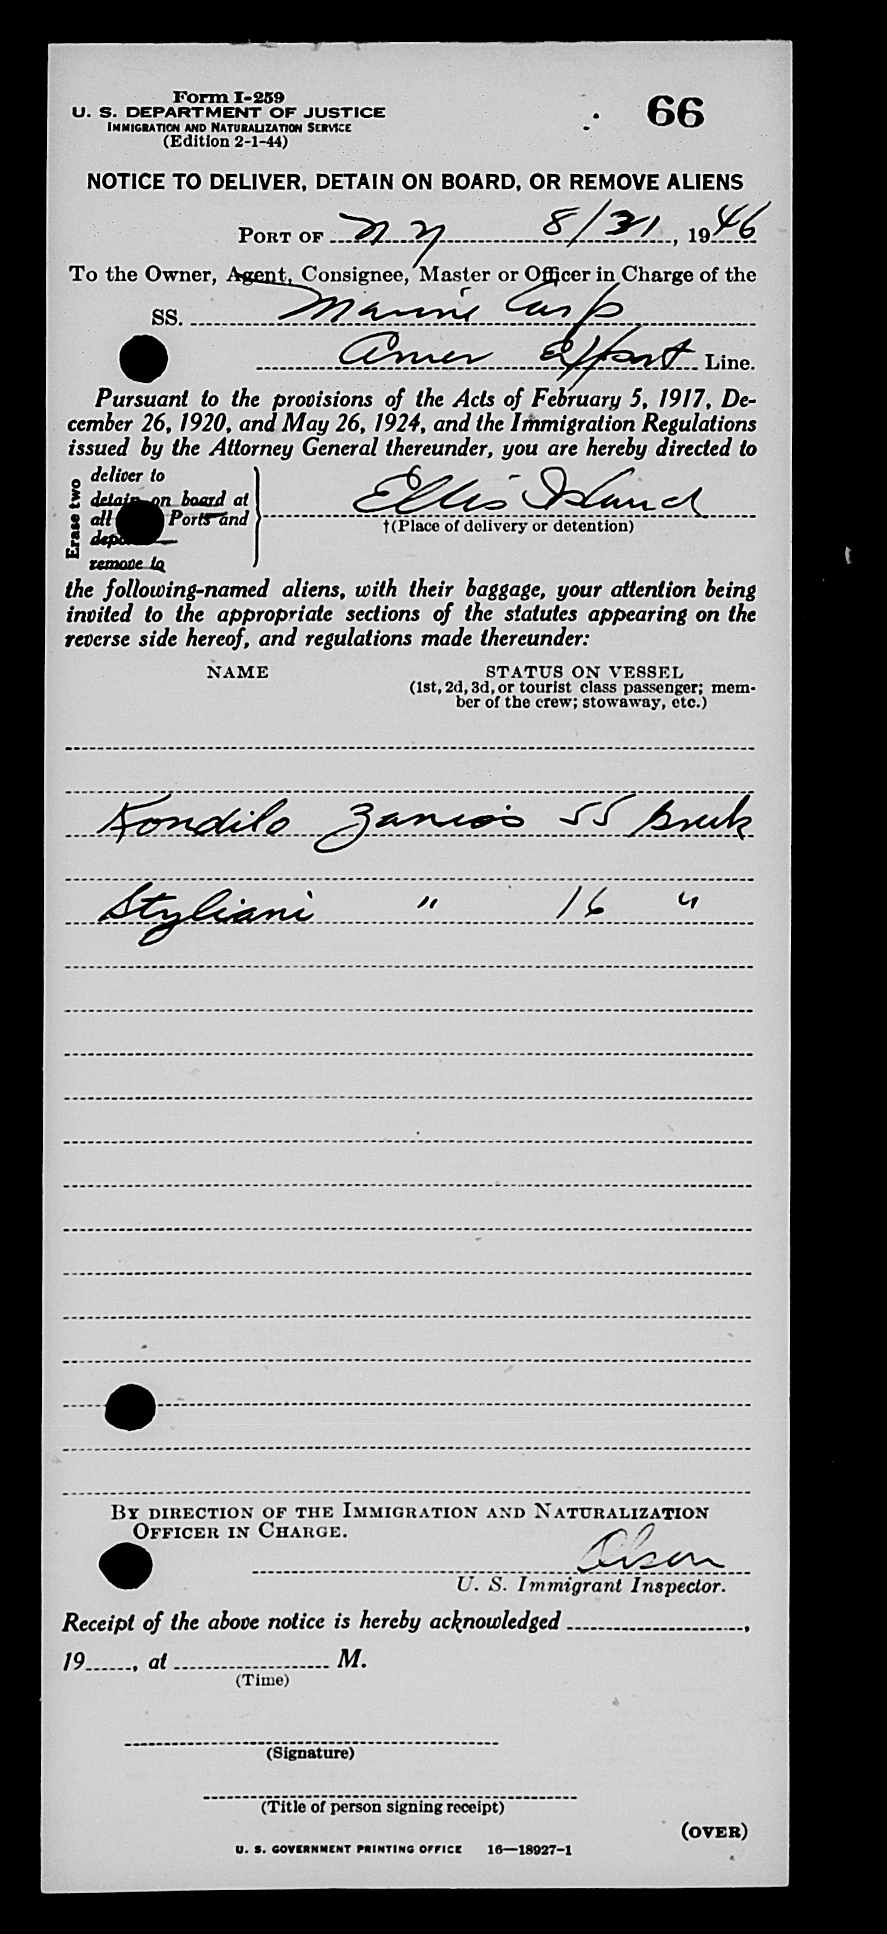 Form I-259
U. S. DEPARTMENT OF JUSTICE
IMMIGRATION AND NATURALIZATION SERVICE
(Edition 2-1-44)
66
NOTICE TO DELIVER, DETAIN ON BOARD, OR REMOVE ALIENS
PORT OF N Y 8/31, 1946
To the Owner, Agent, Consignee, Master or Officer in Charge of the
SS. Marine Carp
Amer Export Line.
Pursuant to the provisions of the Acts of February 5, 1917, De-
cember 26, 1920, and May 26, 1924, and the Immigration Regulations
issued by the Attorney General thereunder, you are hereby directed to
Erase two
deliver to
detain on board at
all Ports and
remove to
Ellis Island
†(Place of delivery or detention)
the following-named aliens, with their baggage, your attention being
invited to the appropriate sections of the statutes appearing on the
reverse side hereof, and regulations made thereunder:
NAME STATUS ON VESSEL
(1st, 2d, 3d, or tourist class passenger; mem-
ber of the crew; stowaway, etc.)
Kondilo 55 Greek
Styliani " 16 "
BY DIRECTION OF THE IMMIGRATION AND NATURALIZATION
OFFICER IN CHARGE.
Olson
U. S. Immigrant Inspector.
Receipt of the above notice is hereby acknowledged ,
19 , at M.
(Time)
(Signature)
(Title of person signing receipt)
(OVER)
U. S. GOVERNMENT PRINTING OFFICE 16—18927-1